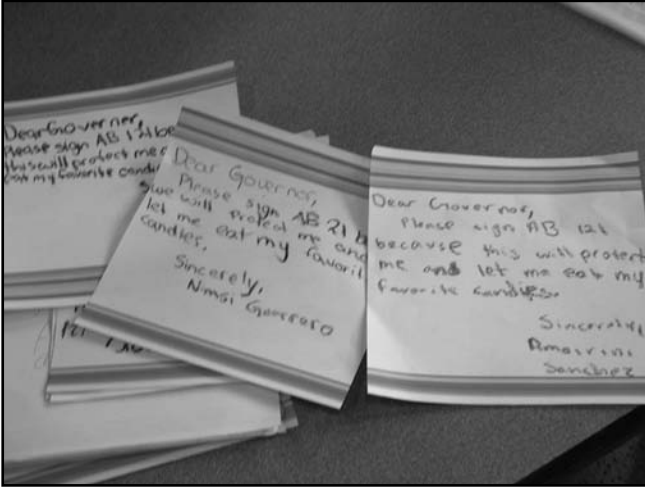 Dear Governer,
Please sign AB 121 be
this will protect me
eat my favorite candi
Dear Governor,
Please sign AB 21 b
will protect me and
let me eat my favorit
candies.
Sincerely,
Nmsi Guerrero
Dear Governor,
Please sign AB 121
because this will protect
me and let me eat my
favorite candies.
Sincerely,
Sanchez
121